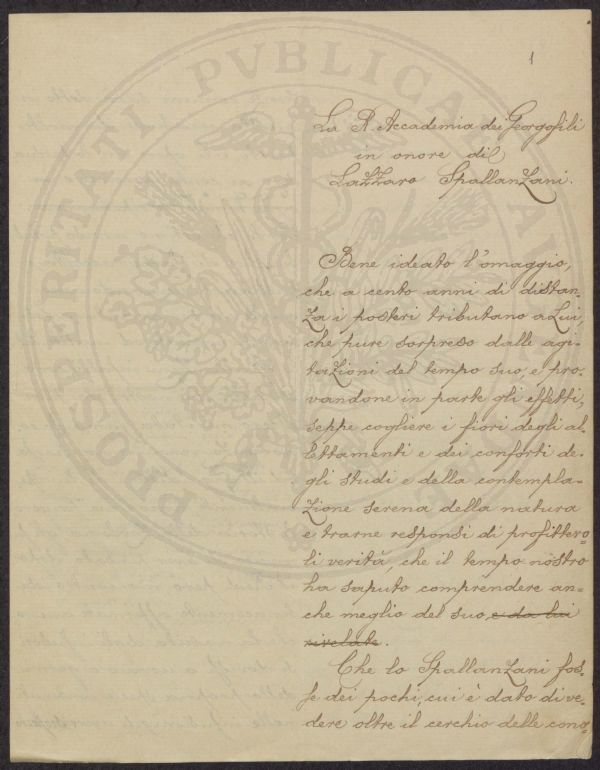 1
La R. Accademia dei Georgofili
in onore di
Lazzaro Spallanzani.
Bene ideato l'omaggio,
che a cento anni di distan-
za i posteri tributano a Lui,
che pure sorpreso dalle agi-
tazioni del tempo suo, e pro-
vandone in parte gli effetti,
seppe cogliere i fiori degli al-
lettamenti e dei conforti de-
gli studi e della contempla-
zione serena della natura
e trarne responsi di profittevo-
li verità, che il tempo nostro
ha saputo comprendere an-
che meglio del suo, e da lui
rivelate.
Che lo Spallanzani fos-
se dei pochi, cui è dato di ve-
dere oltre il cerchio delle cono-
PROSPERITATI PVBLICAE